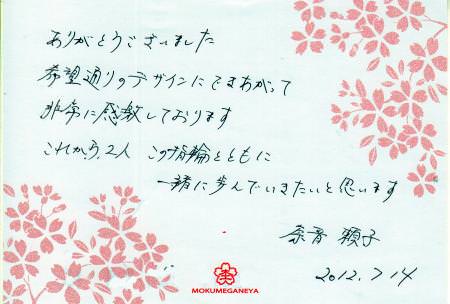 ありがとうございました
希望通りのデザインにできあがって
非常に感激しております
これから、2人 この指輪とともに
一緒に歩んでいきたいと思います
頼子
2012.7.14
MOKUMEGANEYA